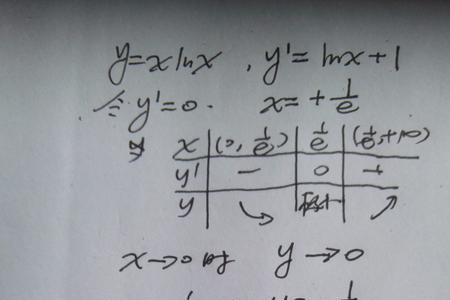 y=xlnx , y'=lnx+1
令 y'=0. x=+1/e
x (0, 1/e) 1/e (1/e,+∞)
y' − 0 +
y ↘ ↗
x→0时 y→0